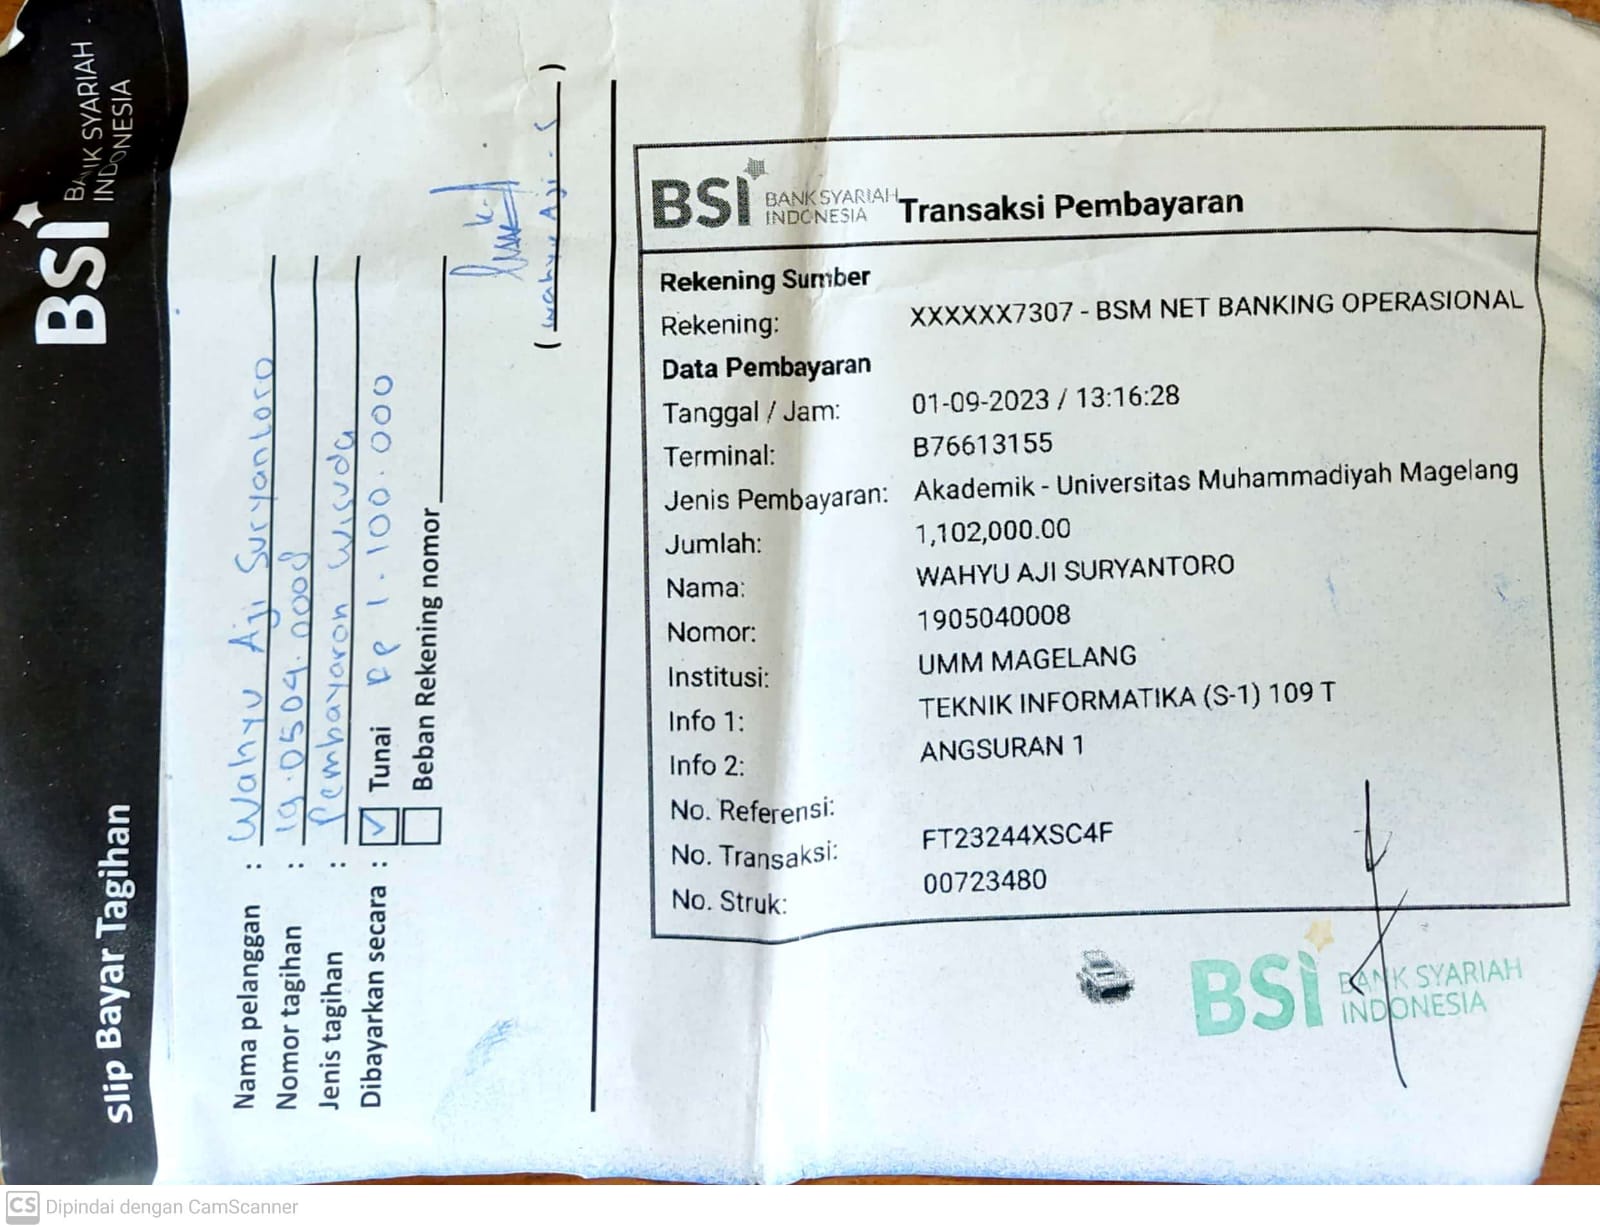 BSI BANK SYARIAH
INDONESIA
Slip Bayar Tagihan
Nama pelanggan : Wahyu Aji Suryantoro
Nomor tagihan : 19.0504.0008
Jenis tagihan : Pembayaran Wisuda
Dibayarkan secara : Tunai Rp 1.100.000
Beban Rekening nomor
( Wahyu Aji. S )
BSI BANK SYARIAH
INDONESIA
Transaksi Pembayaran
Rekening Sumber
Rekening: XXXXXX7307 - BSM NET BANKING OPERASIONAL
Data Pembayaran
Tanggal / Jam: 01-09-2023 / 13:16:28
Terminal: B76613155
Jenis Pembayaran: Akademik - Universitas Muhammadiyah Magelang
Jumlah: 1,102,000.00
Nama: WAHYU AJI SURYANTORO
Nomor: 1905040008
Institusi: UMM MAGELANG
Info 1: TEKNIK INFORMATIKA (S-1) 109 T
Info 2: ANGSURAN 1
No. Referensi:
No. Transaksi: FT23244XSC4F
No. Struk: 00723480
BSI BANK SYARIAH
INDONESIA
CS Dipindai dengan CamScanner